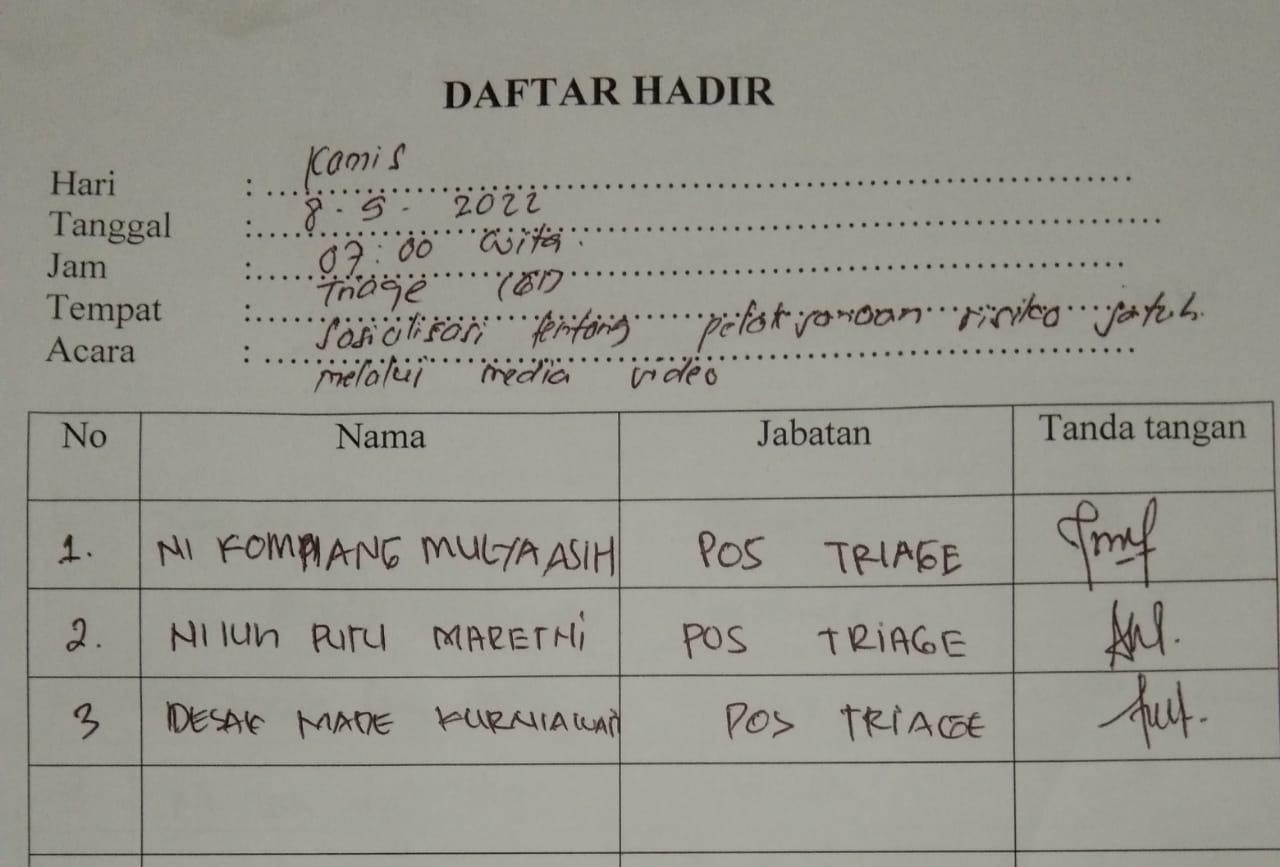 DAFTAR HADIR
Hari : Kamis
Tanggal : 8-9-2022
Jam : 07:00 wita.
Tempat : Triage IGD
Acara : Sosialisasi tentang pelaksanaan risiko jatuh
melalui media video
No Nama Jabatan Tanda tangan
1. NI KOMPIANG MULYAASIH POS TRIAGE
2. NI LUH PUTU MARETHI POS TRIAGE
3 DESAK MADE KURNIAWATI POS TRIAGE